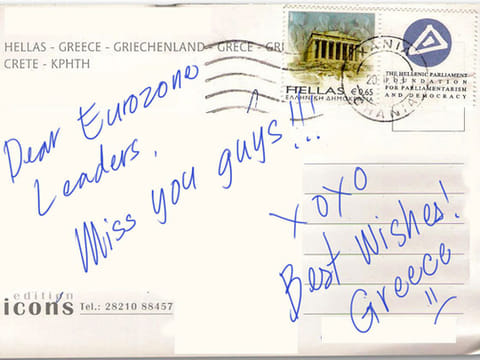 HELLAS - GREECE - GRIECHENLAND - GRECE - GRI
CRETE - ΚΡΗΤΗ
HELLAS €0,65
ΕΛΛΗΝΙΚΗ ΔΗΜΟΚΡΑΤΙΑ
THE HELLENIC PARLIAMENT
FOUNDATION
FOR PARLIAMENTARISM
AND DEMOCRACY
Dear Eurozone
Leaders,
Miss you guys!!!
XOXO
Best Wishes!
Greece
edition
icons Tel.: 28210 88457